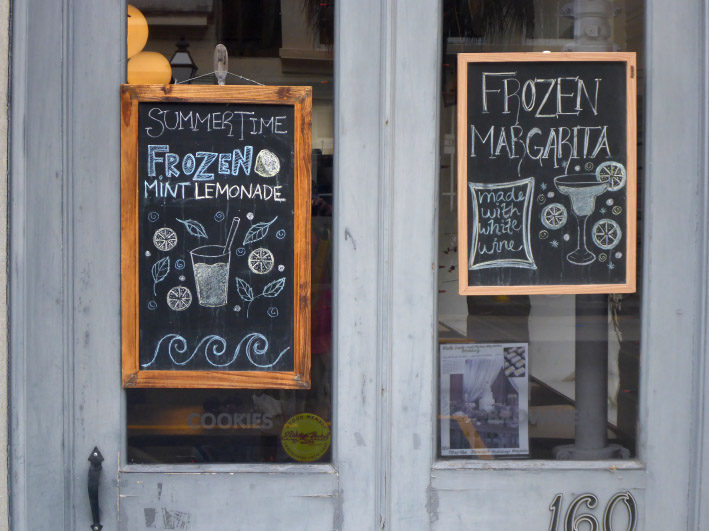 SUMMERTIME
FROZEN
MINT LEMONADE
COOKIES
FROZEN
MARGARITA
made
with
white
wine
160